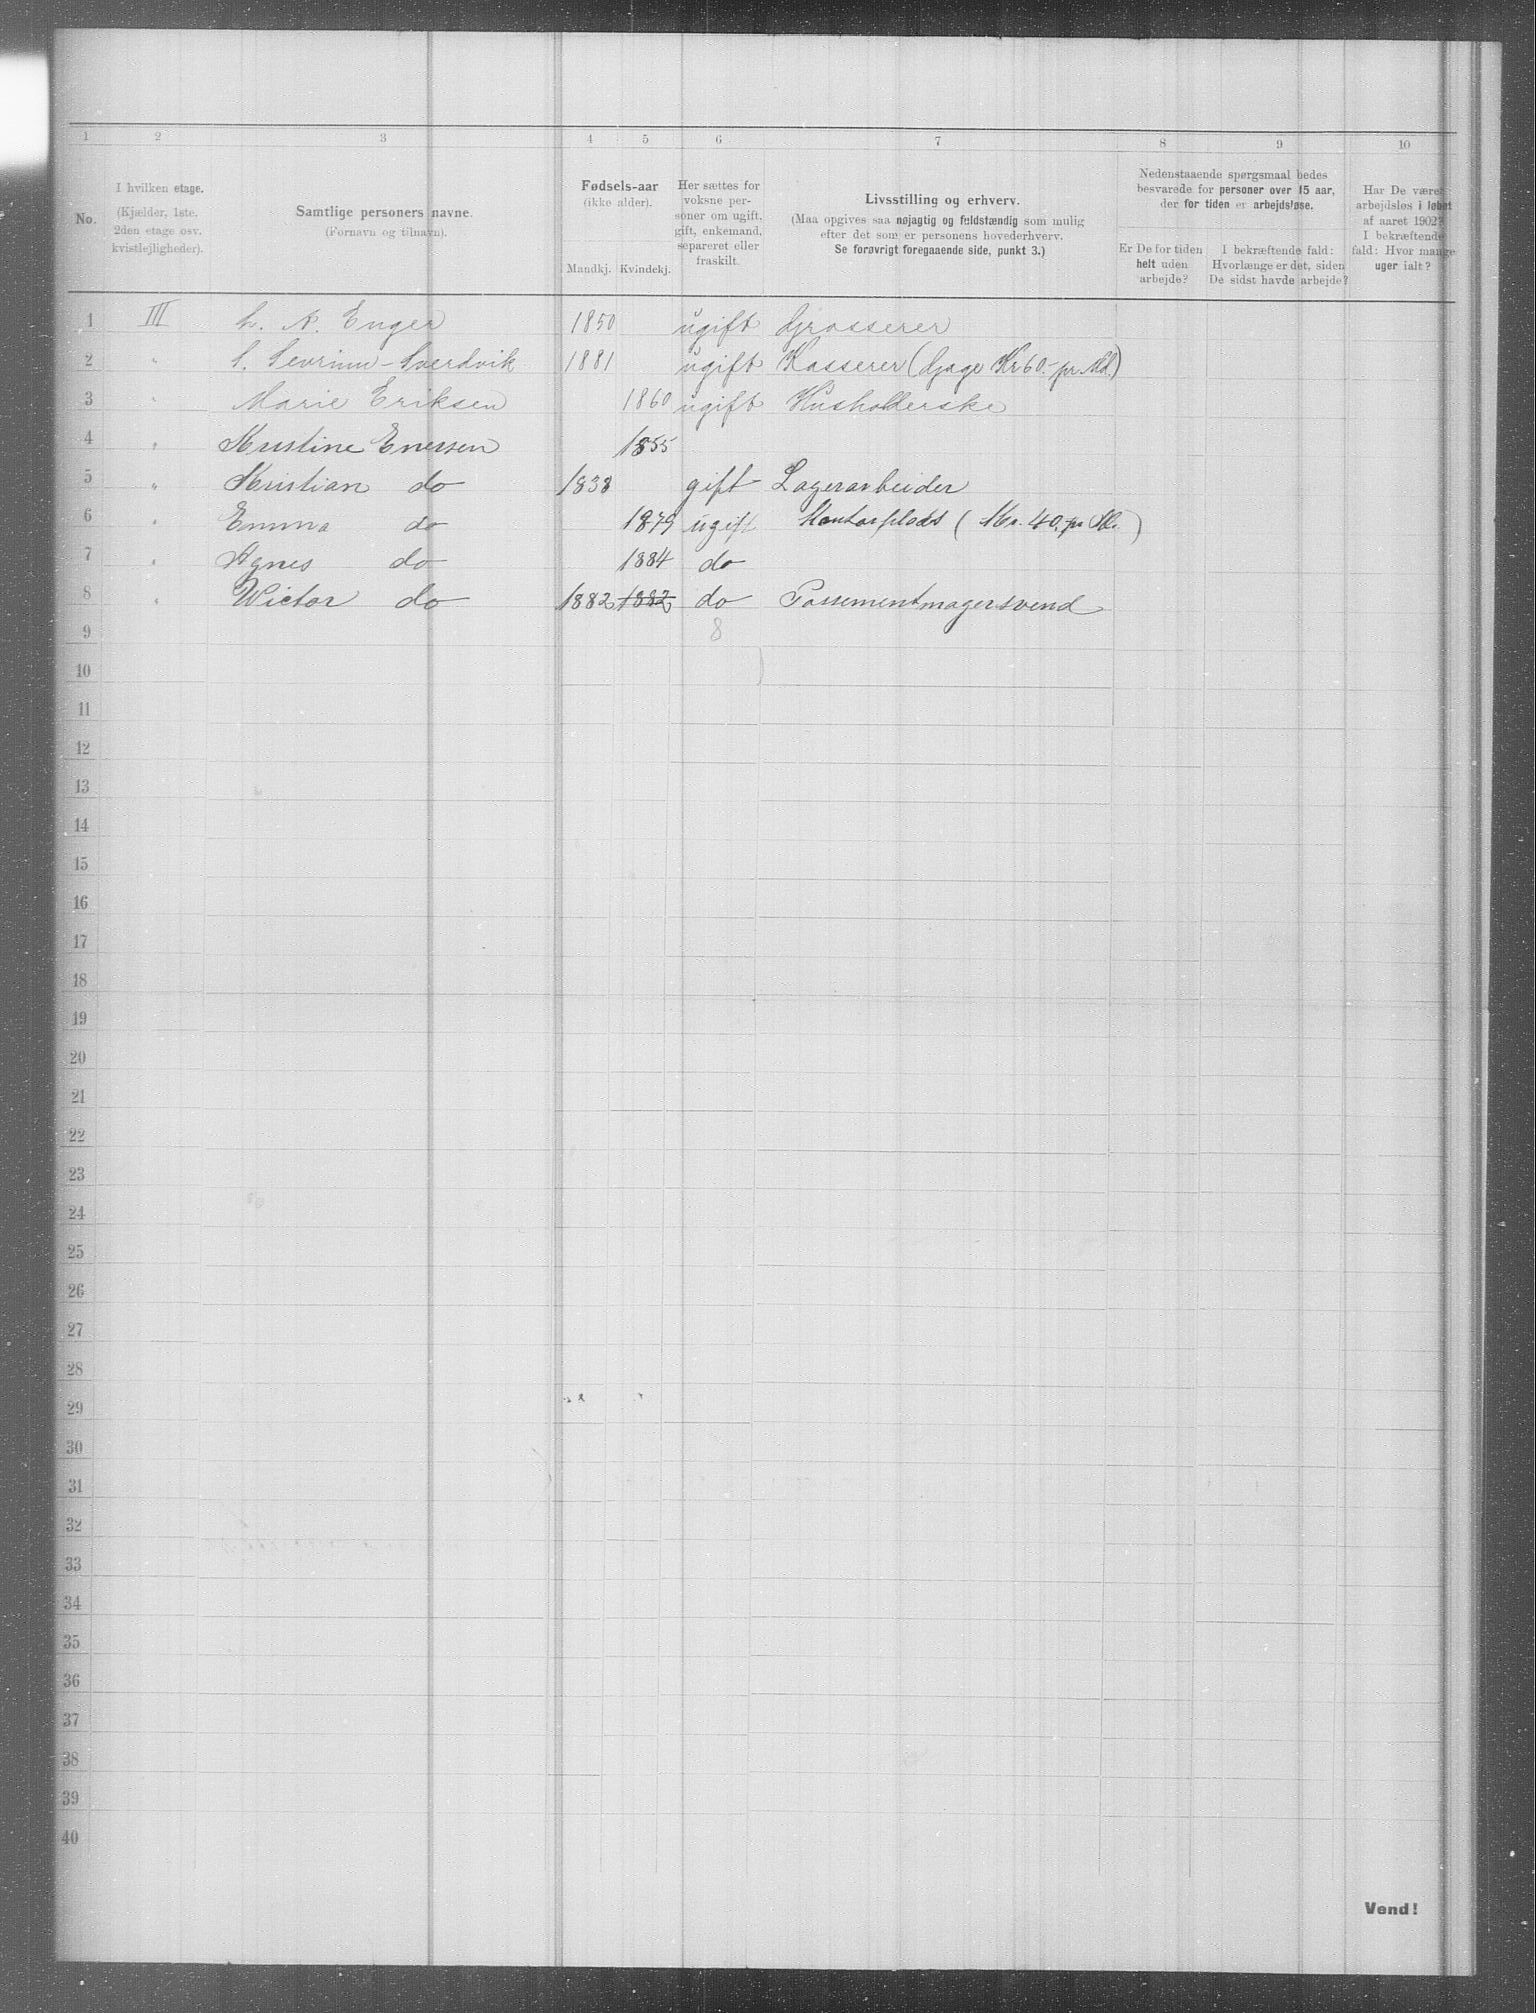 1 2 3 4 5 6 7 8 9 10
No.
I hvilken etage.
(Kjælder, 1ste,
2den etage osv.
kvistlejligheder).
Samtlige personers navne.
(Fornavn og tilnavn).
Fødsels-aar
(ikke alder).
Mandkj. Kvindekj.
Her sættes for
voksne per-
soner om ugift,
gift, enkemand,
separeret eller
fraskilt.
Livsstilling og erhverv.
(Maa opgives saa nøjagtig og fuldstændig som mulig
efter det som er personens hovederhverv.
Se forøvrigt foregaaende side, punkt 3.)
Nedenstaaende spørgsmaal bedes
besvarede for personer over 15 aar,
der for tiden er arbejdsløse.
Er De for tiden
helt uden
arbejde?
I bekræftende fald:
Hvorlænge er det, siden
De sidst havde arbejde?
Har De været
arbejdsløs i løbet
af aaret 1902?
I bekræftende
fald: Hvor mange
uger ialt?
1 III A. Enger 1850 ugift Grosserer
2 " Sevrinn-Sverdvik 1881 ugift Kasserer (Gage Kr 60.- pr. Md.)
3 " Marie Eriksen 1860 ugift Husholderske
4 " Kristine Enersen 1855
5 " Kristian do 1838 gift Lagerarbeider
6 " Emma do 1879 ugift Kontorplads (Kr. 40, pr )
7 " Agnes do 1884 do
8 " Wictor do 1882 1882 do Possementmagersvend
9 8
10
11
12
13
14
15
16
17
18
19
20
21
22
23
24
25
26
27
28
29
30
31
32
33
34
35
36
37
38
39
40
Vend!